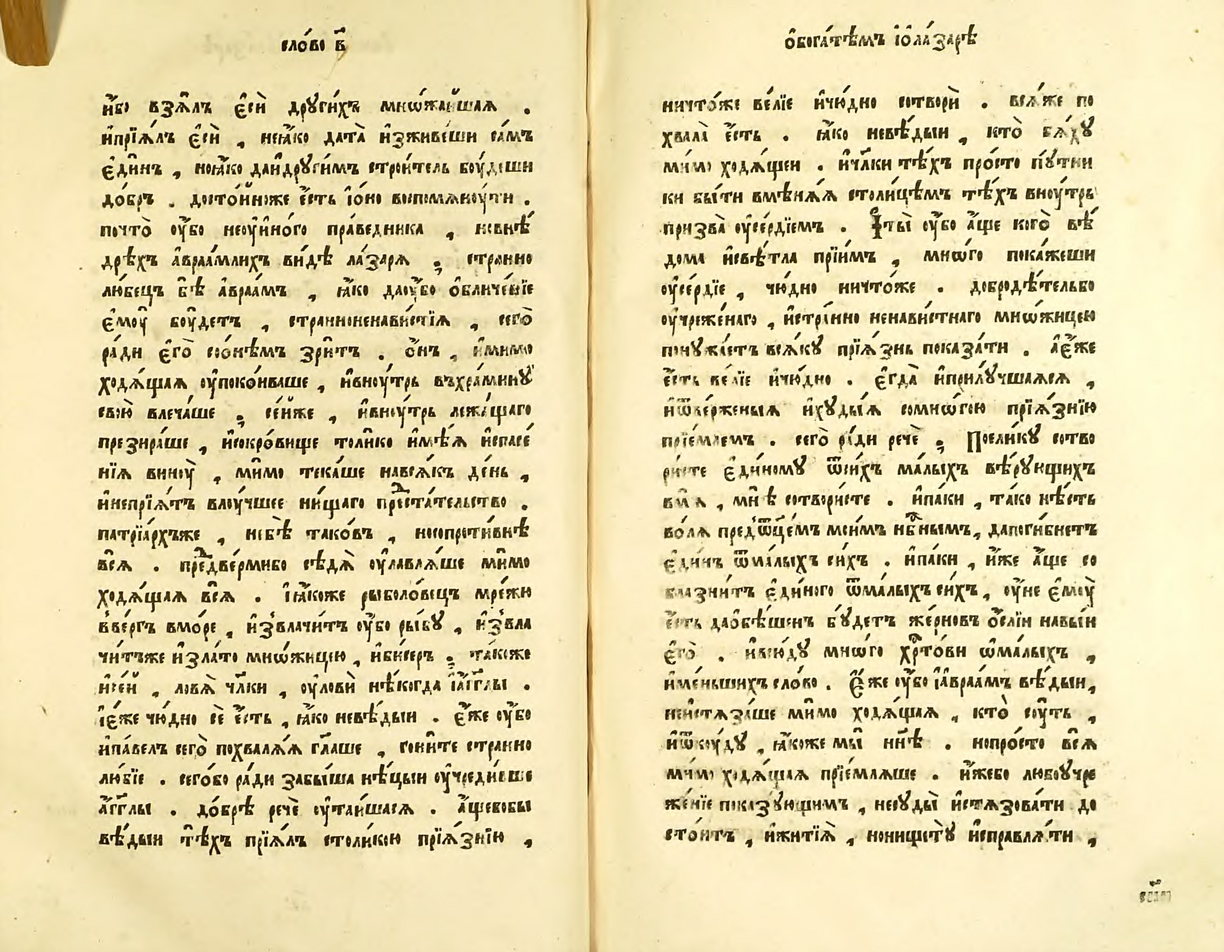 сло́во в҃
и҆́бо взѧ́лъ є҆сѝ дрꙋги́хъ мнѡ́жайшаѧ .
и҆прїѧ́лъ є҆сѝ , неꙗ҆́ко дата̀ и҆зживе́ши са́мъ
є҆ди́нъ , ноꙗ҆́ко даи҆дрꙋги́мъ строи́тель бꙋ́деши
до́бръ . досто́йноже є҆́сть і҆о́но воспомѧнꙋ́ти .
почто̀ ᲂу҆̀бо неꙋ҆и́ного пра́ведника , новнѣ́
дрѣхъ а҆враа́млихъ ви́дѣ ла́зарѧ ; странно
лю́бецъ бѣ̀ а҆враа́мъ , ꙗ҆́ко даᲂу҆́бо ѻ҆бличе́нїе
є҆мꙋ̀ бꙋ́детъ , странноненави́стїѧ , сего̀
ра́ди є҆го̀ сѻ҆́нѣмъ зри́тъ . ѻ҆́нъ , и҆ми́мо
ходѧ́щаѧ ᲂу҆поко́иваше , и҆внꙋ́трь въхра́минꙋ
свою̀ влеча́ше ; се́йже , и҆внꙋ́трь лежа́щаго
презира́ше , и҆сокро́вище толи́ко и҆мѣ́ѧ и҆спасе́
нїѧ винꙋ̀ , ми́мо тека́ше навсѧ́къ де́нь ,
и҆непрїѧ́тъ влꙋ́чшее ни́щаго предста́тельство .
патрїа́рхъже , небѣ̀ тако́въ , носопроти́внѣ
всѧ̀ . предве́рмибо сѣдѧ̀ ᲂу҆лавлѧ́ше ми́мо
ходѧ́щаѧ всѧ̀ . і҆ꙗ҆́коже рыболо́вецъ мре́жю
вве́ргъ вмо́ре , и҆звлачи́тъ ᲂу҆́бо ры́бꙋ , и҆звла
чи́тъже и҆зла́то мно́жицею , и҆би́серъ ; та́коже
и҆се́й , ловѧ̀ чл҃ки , ᲂу҆лови̏ нѣ́когда і҆а҆́гг҃лы .
і҆є҆́же чю́дно се̏ є҆́сть , ꙗ҆́ко невѣ́дыи . є҆́же ᲂу҆́бо
и҆па́велъ сего̀ похвалѧ́ѧ гл҃аше , гони́те странно
лю́бїе . сего́бо ра́ди забы́ша нѣ́цыи ᲂу҆чреди́вше
а҆́гг҃лы . до́брѣ рече̏ ᲂу҆таи́шасѧ . а҆́щебобы
вѣ́дыи тѣ́хъ прїѧ́лъ столи́кою прїѧ́знїю ,
ѻ҆бога́тѣмъ і҆ѻ҆ла́зарѣ
ничто́же ве́лїе и҆чю́дно сотвори̏ . всѧ́же по
хвала̏ є҆́сть . ꙗ҆́ко невѣ́дыи , кто̀ бѧ́хꙋ
ми́мо ходѧ́щеи . и҆чл҃ки тѣ́хъ про́сто пꙋ́тни
ки бы́ти вмѣнѧ́ѧ столи́цѣмъ тѣ́хъ внꙋ́трь
призва̏ ᲂу҆се́рдїемъ . І҆ты̀ ᲂу҆́бо а҆́ще кого̀ вѣ́
дома и҆свѣ́тла прїи́мъ , мно́го пока́жеши
ᲂу҆се́рдїе , чю́дно ничто́же . добродѣ́телью
ᲂу҆чреже́наго , и҆стра́нно ненави́стнаго мно́жицею
понꙋжа́етъ всѧ́кꙋ прїѧ́знь показа́ти . а҆є҆́же
є҆́сть ве́лїе и҆чю́дно . є҆гда̏ и҆прилꙋ́чшаѧсѧ ,
и҆ѿве́рженыѧ и҆хꙋды́ѧ сомно́гою прїѧ́знїю
прїе́млемъ . сего̀ ра́ди рече̏ ; Поели́кꙋ сотво
ри́сте є҆ди́номꙋ ѿси́хъ ма́лыхъ вѣ́рꙋющихъ
вмѧ̀ , мнѣ̀ сотвори́сте . и҆па́ки , та́ко нѣ́сть
во́лѧ предѻ҆ц҃е́мъ мои́мъ нбⷭ҇нымъ , дапоги́бнетъ
є҆ди́нъ ѿма́лыхъ си́хъ . и҆па́ки , и҆́же а҆́ще со
блазни́тъ є҆ди́ного ѿма́лыхъ си́хъ , ᲂу҆́не є҆мꙋ̀
є҆́сть даѻ҆бѣ́шенъ бꙋ́детъ же́рновъ ѻ҆́слїи навы́и
є҆го̀ . и҆всю́дꙋ мно́го хрⷭ҇то́ви ѡ҆ма́лыхъ ,
и҆ме́ньшихъ сло́во . є҆́же ᲂу҆́бо і҆а҆враа́мъ вѣ́дыи,
неи҆стѧза́ше ми́мо ходѧ́щаѧ , кто̀ сꙋ́ть ,
и҆ѿкꙋ́дꙋ , ꙗ҆́коже мы̀ нн҃ѣ . нопро́сто всѧ̀
ми́мо ходѧ́щаѧ прїе́млѧше . и҆́жебо любоꙋ҆чре
же́нїе показꙋ́ющимъ , неꙋ҆ды̀ и҆стѧзова́ти до
сто́итъ , и҆житїѧ̀ , нонищетꙋ̀ и҆справлѧ́ти ,